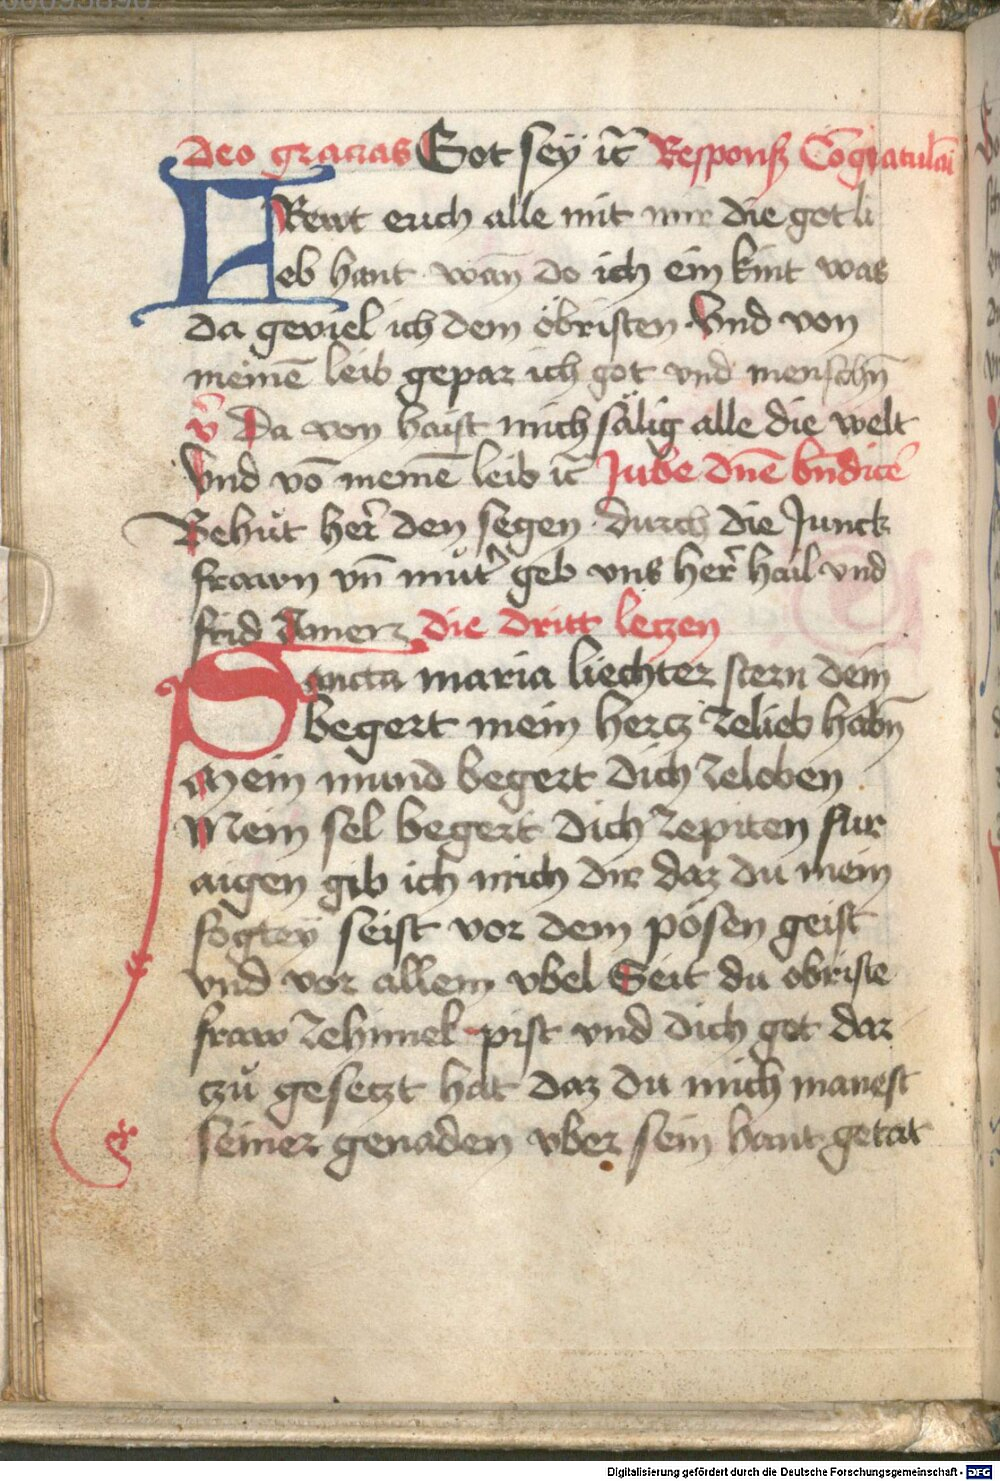 deo gracias Got sey ic̄ Respons̄ Cōgratulāi
FRewt euch alle mit mir die got li
eb hant wan̄ do ich ein kint was
da geviel ich dem öbristen Vnd von
meinē leib gepar ich got vnd menschn̄
v̄ Da von haist mich sälig alle die welt
Vnd vō meinē leib ic̄ Jube dn̄e bn̄dicē
Behüt her̄ den segen durch die Junck
frawn vn̄ mut̓ geb vns her̄ hail vnd
frid Amen die dritt leczen
Sancta maria liechter stern dein
begert mein hercz zelieb habn̄
Mein mund begert dich zeloben
Mein sel begert dich zepiten fur
aigen gib ich mich dir daz du mein
fogtey seist vor dem pösen geist
vnd vor allem vbel Seit du obriste
fraw zehimel pist vnd dich got dar
czů geseczt hat daz du mich manest
seiner genaden vber sein hant getat
Digitalisierung gefördert durch die Deutsche Forschungsgemeinschaft - DFG